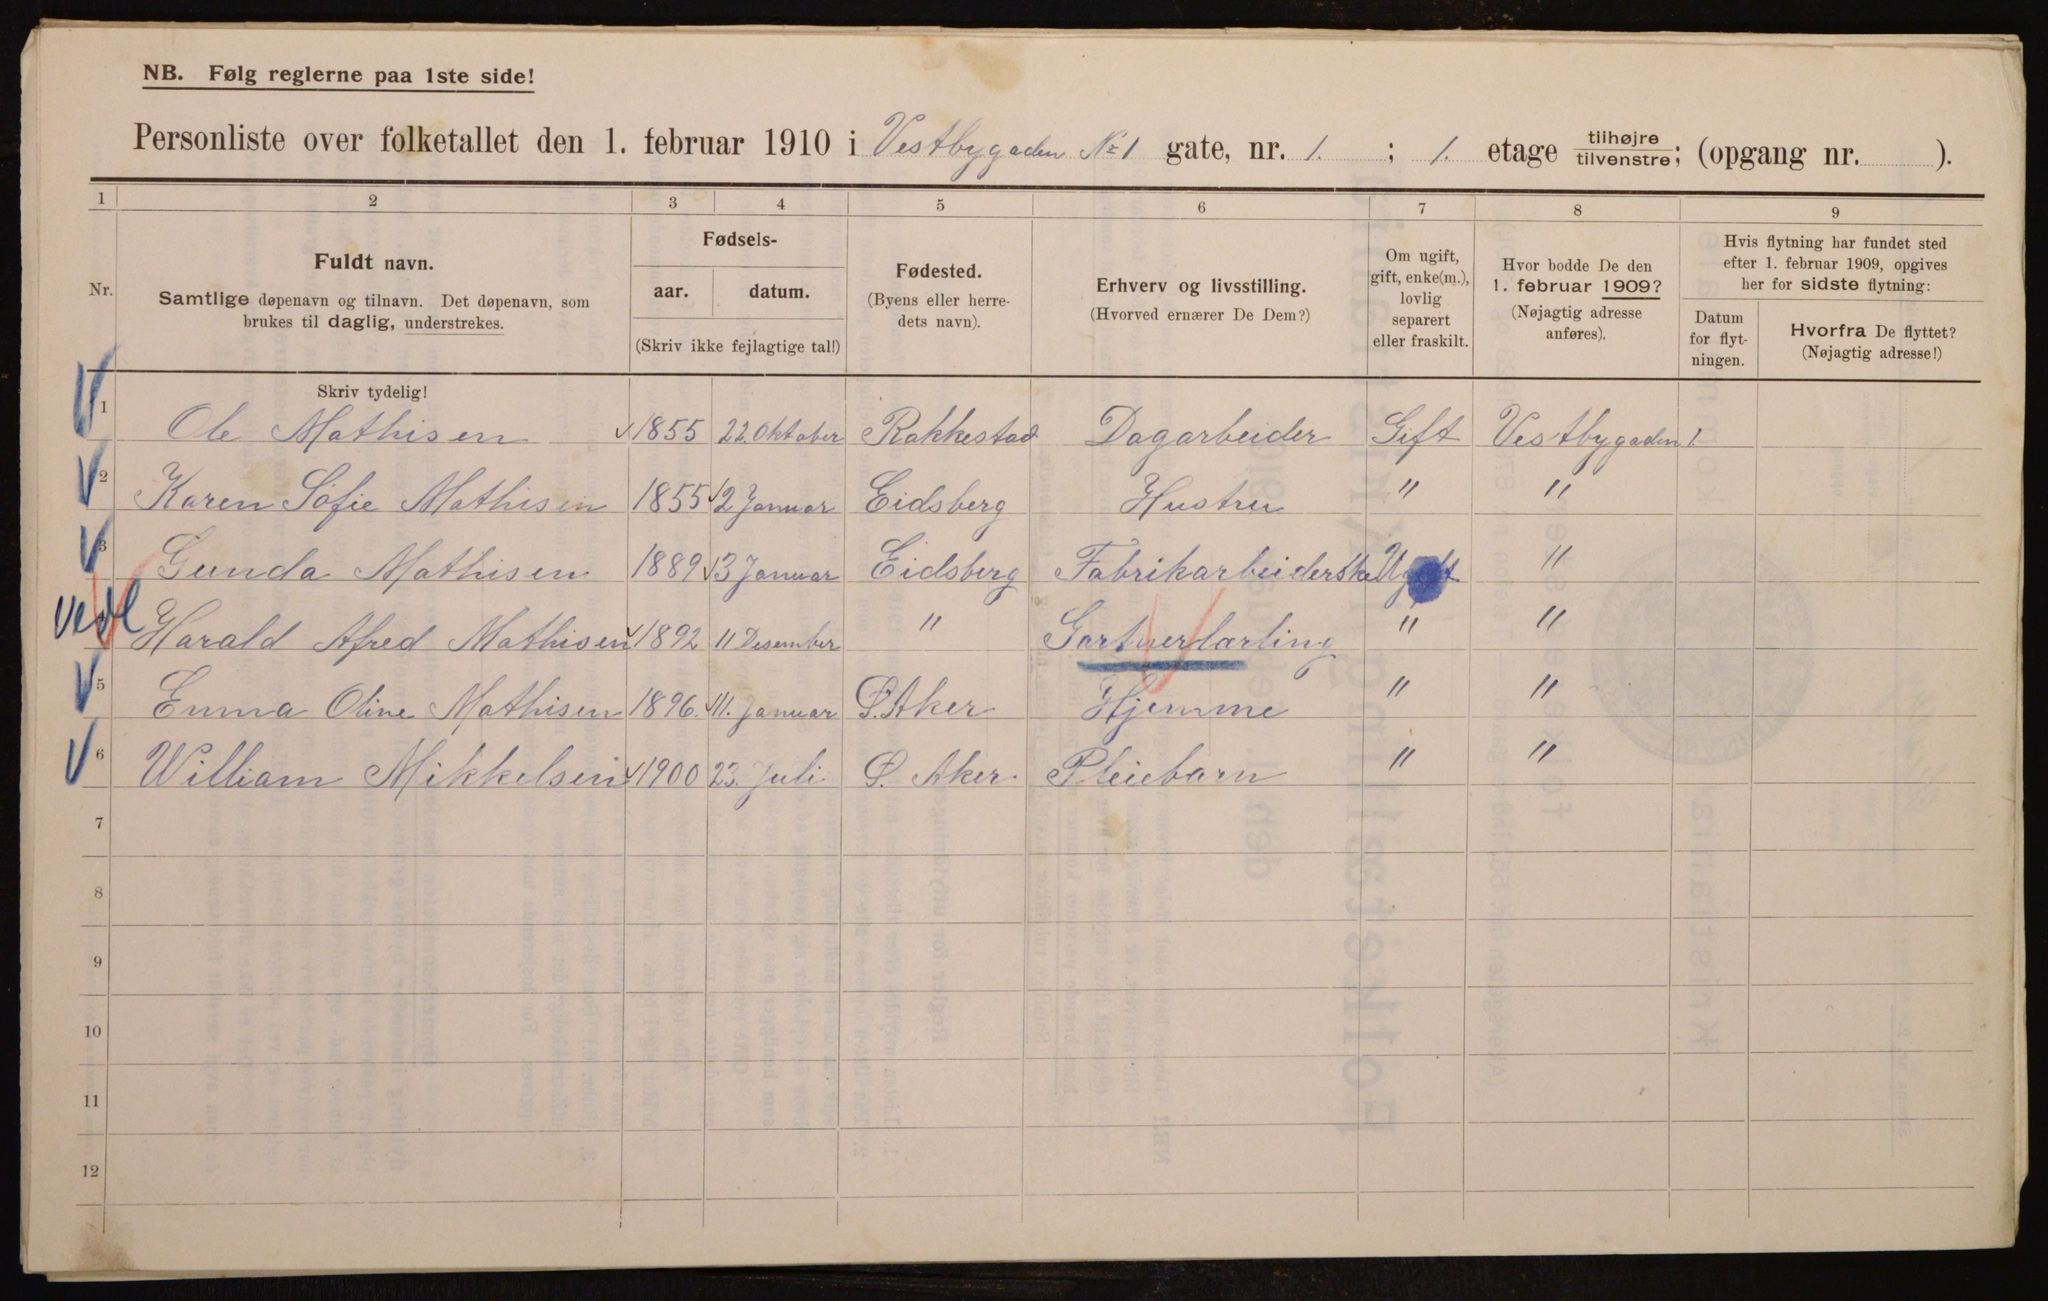 NB. Følg reglerne paa 1ste side!
Personliste over folketallet den 1. februar 1910 i Vestbygaden No 1 gate, nr. 1. ; 1. etage tilhøjre/tilvenstre; (opgang nr. ).
1 2 3 4 5 6 7 8 9
Nr.
Fuldt navn.
Samtlige døpenavn og tilnavn. Det døpenavn, som
brukes til daglig, understrekes.
Skriv tydelig!
Fødsels-
aar. datum.
(Skriv ikke fejlagtige tal!)
Fødested.
(Byens eller herre-
dets navn).
Erhverv og livsstilling.
(Hvorved ernærer De Dem?)
Om ugift,
gift, enke(m.),
lovlig
separert
eller fraskilt.
Hvor bodde De den
1. februar 1909?
(Nøjagtig adresse
anføres).
Hvis flytning har fundet sted
efter 1. februar 1909, opgives
her for sidste flytning:
Datum
for flyt-
ningen.
Hvorfra De flyttet?
(Nøjagtig adresse!)
1 Ole Mathisen 1855 22. Oktober Rakkestad Dagarbeider Gift Vestbygaden 1.
2 Karen Sofie Mathisen 1855 2 Januar Eidsberg Hustru " "
3 Gunda Mathisen 1889 3 Januar Eidsberg Fabrikarbeiderske Ugift "
Harald Afred Mathisen 1892 11 Desember " Gartnerlærling " "
5 Emma Oline Mathisen 1896. 11. Januar Ø. Aker Hjemme " "
6 William Mikkelsen 1900 23. Juli Ø. Aker Pleiebarn " "
7
8
9
10
11
12